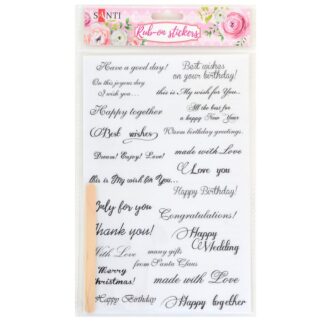 SANTI
Rub-on stickers
Have a good day!
Best wishes
on your birthday!
On this joyous day
I wish you...
this is My wish for You...
Happy together
All the best for
a happy New Year
Best wishes
Warm birthday greetings
Dream! Enjoy! Love!
made with Love
I Love you
this is My wish for You...
Happy Birthday!
Only for you
Congratulations!
Thank you!
Happy
Wedding
With Love
many gifts
from Santa Claus
Merry
Christmas!
made with Love
Happy Birthday
Happy together